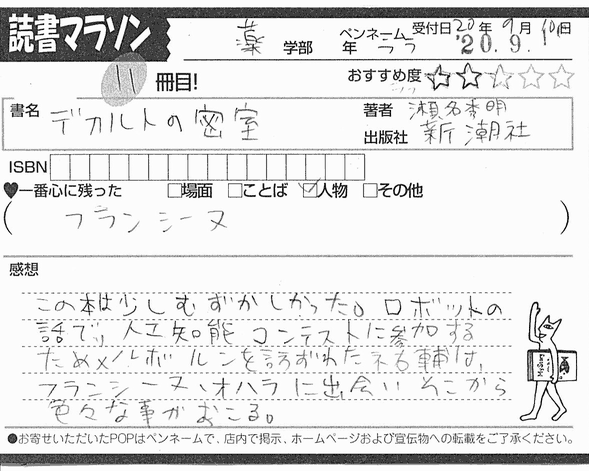 読書マラソン
薬 学部 年 ペンネーム ララ
受付日 20年 9月 10日
'20.9.10
11 冊目!
おすすめ度 ★★☆☆☆
書名 デカルトの密室
著者 瀬名秀明
出版社 新潮社
ISBN
♥一番心に残った □場面 □ことば ☑人物 □その他
( フランシーヌ )
感想
この本は少しむずかしかった。ロボットの
話で、人工知能コンテストに参加する
ためメルボルンを訪ずれた祐輔は、
フランシーヌ・オハラに出会いそこから
色々な事がおこる。
●お寄せいただいたPOPはペンネームで、店内で掲示、ホームページおよび宣伝物への転載をご了承ください。